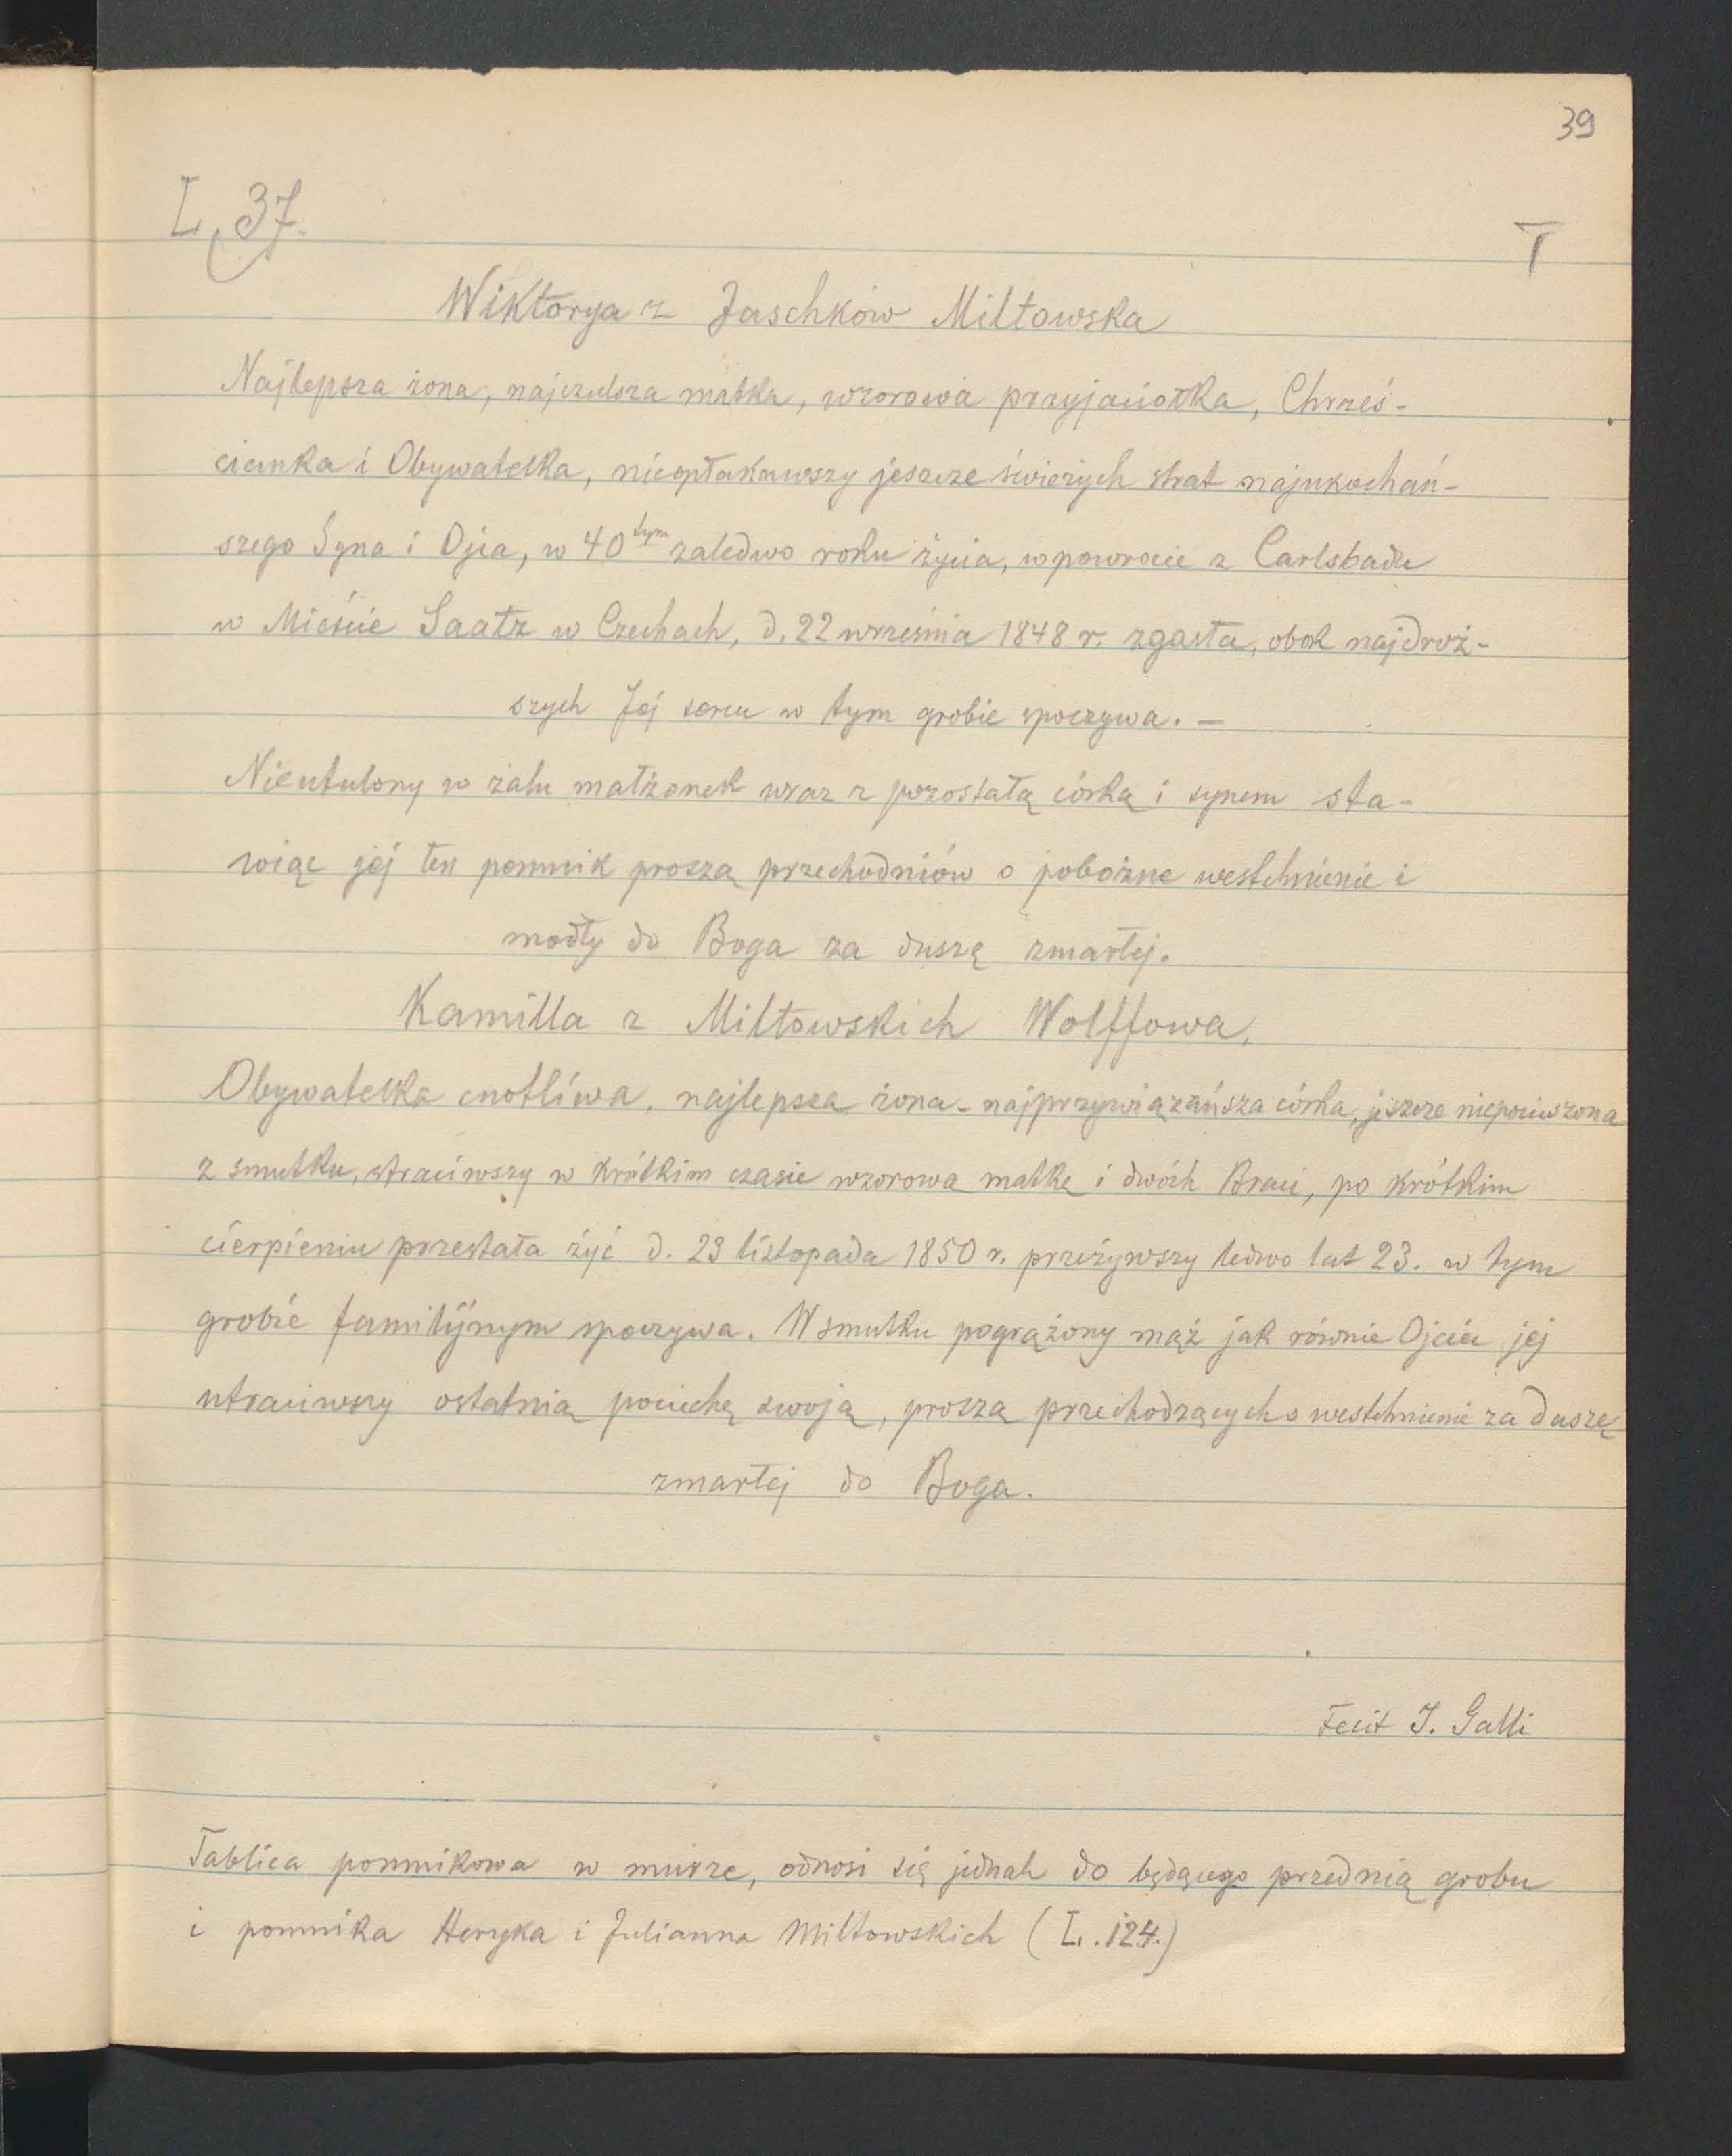 39
L. 37.
T
Wiktorya z Jaschków Miłtowska
Najlepsza żona, najczulsza matka, wzorowa przyjaciołka, Chrześ-
cianka i Obywatelka, nieopłakawszy jeszcze świeżych strat najukochań-
szego Syna i Ojca, w 40tym zaledwo roku życia, w powrocie z Carlsbadu
w Mieście Saatz w Czechach, d. 22 września 1848 r. zgasła, obok najdroż-
szych Jej sercu w tym grobie spoczywa. —
Nieutulony w żalu małżonek wraz z pozostałą córką i synem sta-
wiąc jej ten pomnik proszą przechodniów o pobożne westchnienie i
modły do Boga za duszę zmarłej.
Kamilla z Miłtowskich Wolffowa,
Obywatelka cnotliwa, najlepsza żona - najprzywiązańsza córka, jeszcze niepocieszona
z smutku, straciwszy w krótkim czasie wzorowa matkę i dwóch Braci, po krótkim
cierpieniu przestała żyć d. 23 listopada 1850 r. przeżywszy ledwo lat 23. w tym
grobie familijnym spoczywa. W smutku pogrążony mąż jak równie Ojciec jej
utraciwszy ostatnią pociechę swoją, proszą przechodzących o westchnienie za duszę
zmarłej do Boga.
Fecit J. Galli
Tablica pomnikowa w murze, odnosi się jednak do będącego przed nią grobu
i pomnika Heryka i Julianna Miłtowskich (L. 124.)